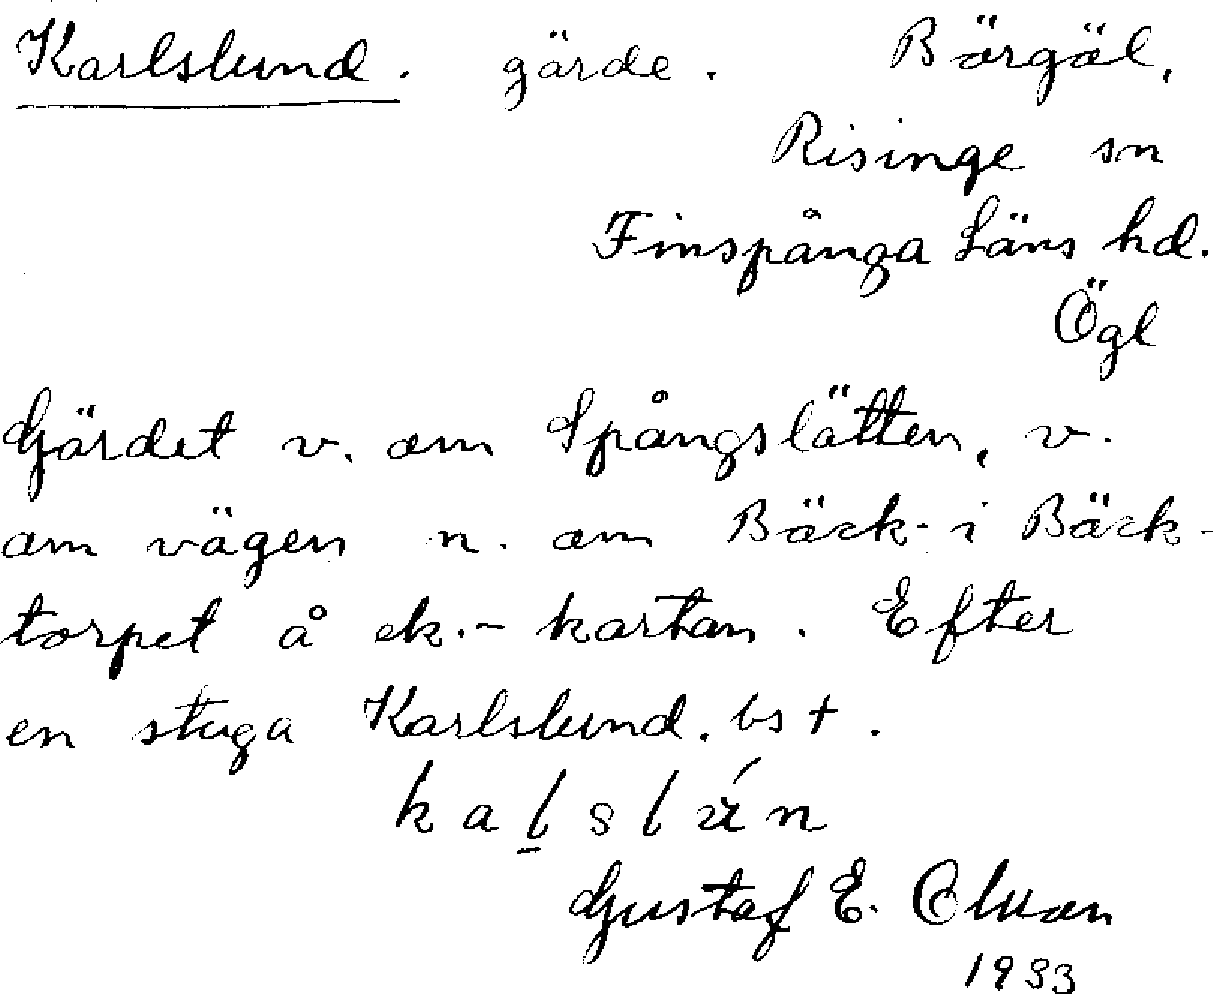 Karlslund. gärde. Börgöl,
Risinge sn
Finspånga Läns hd.
Ögl
Gärdet v. om Spångslätten, v.
om vägen n. om Bäck- i Bäck-
torpet å ek.- kartan. Efter
en stuga Karlslund. bs +.
Gustaf E.
1933